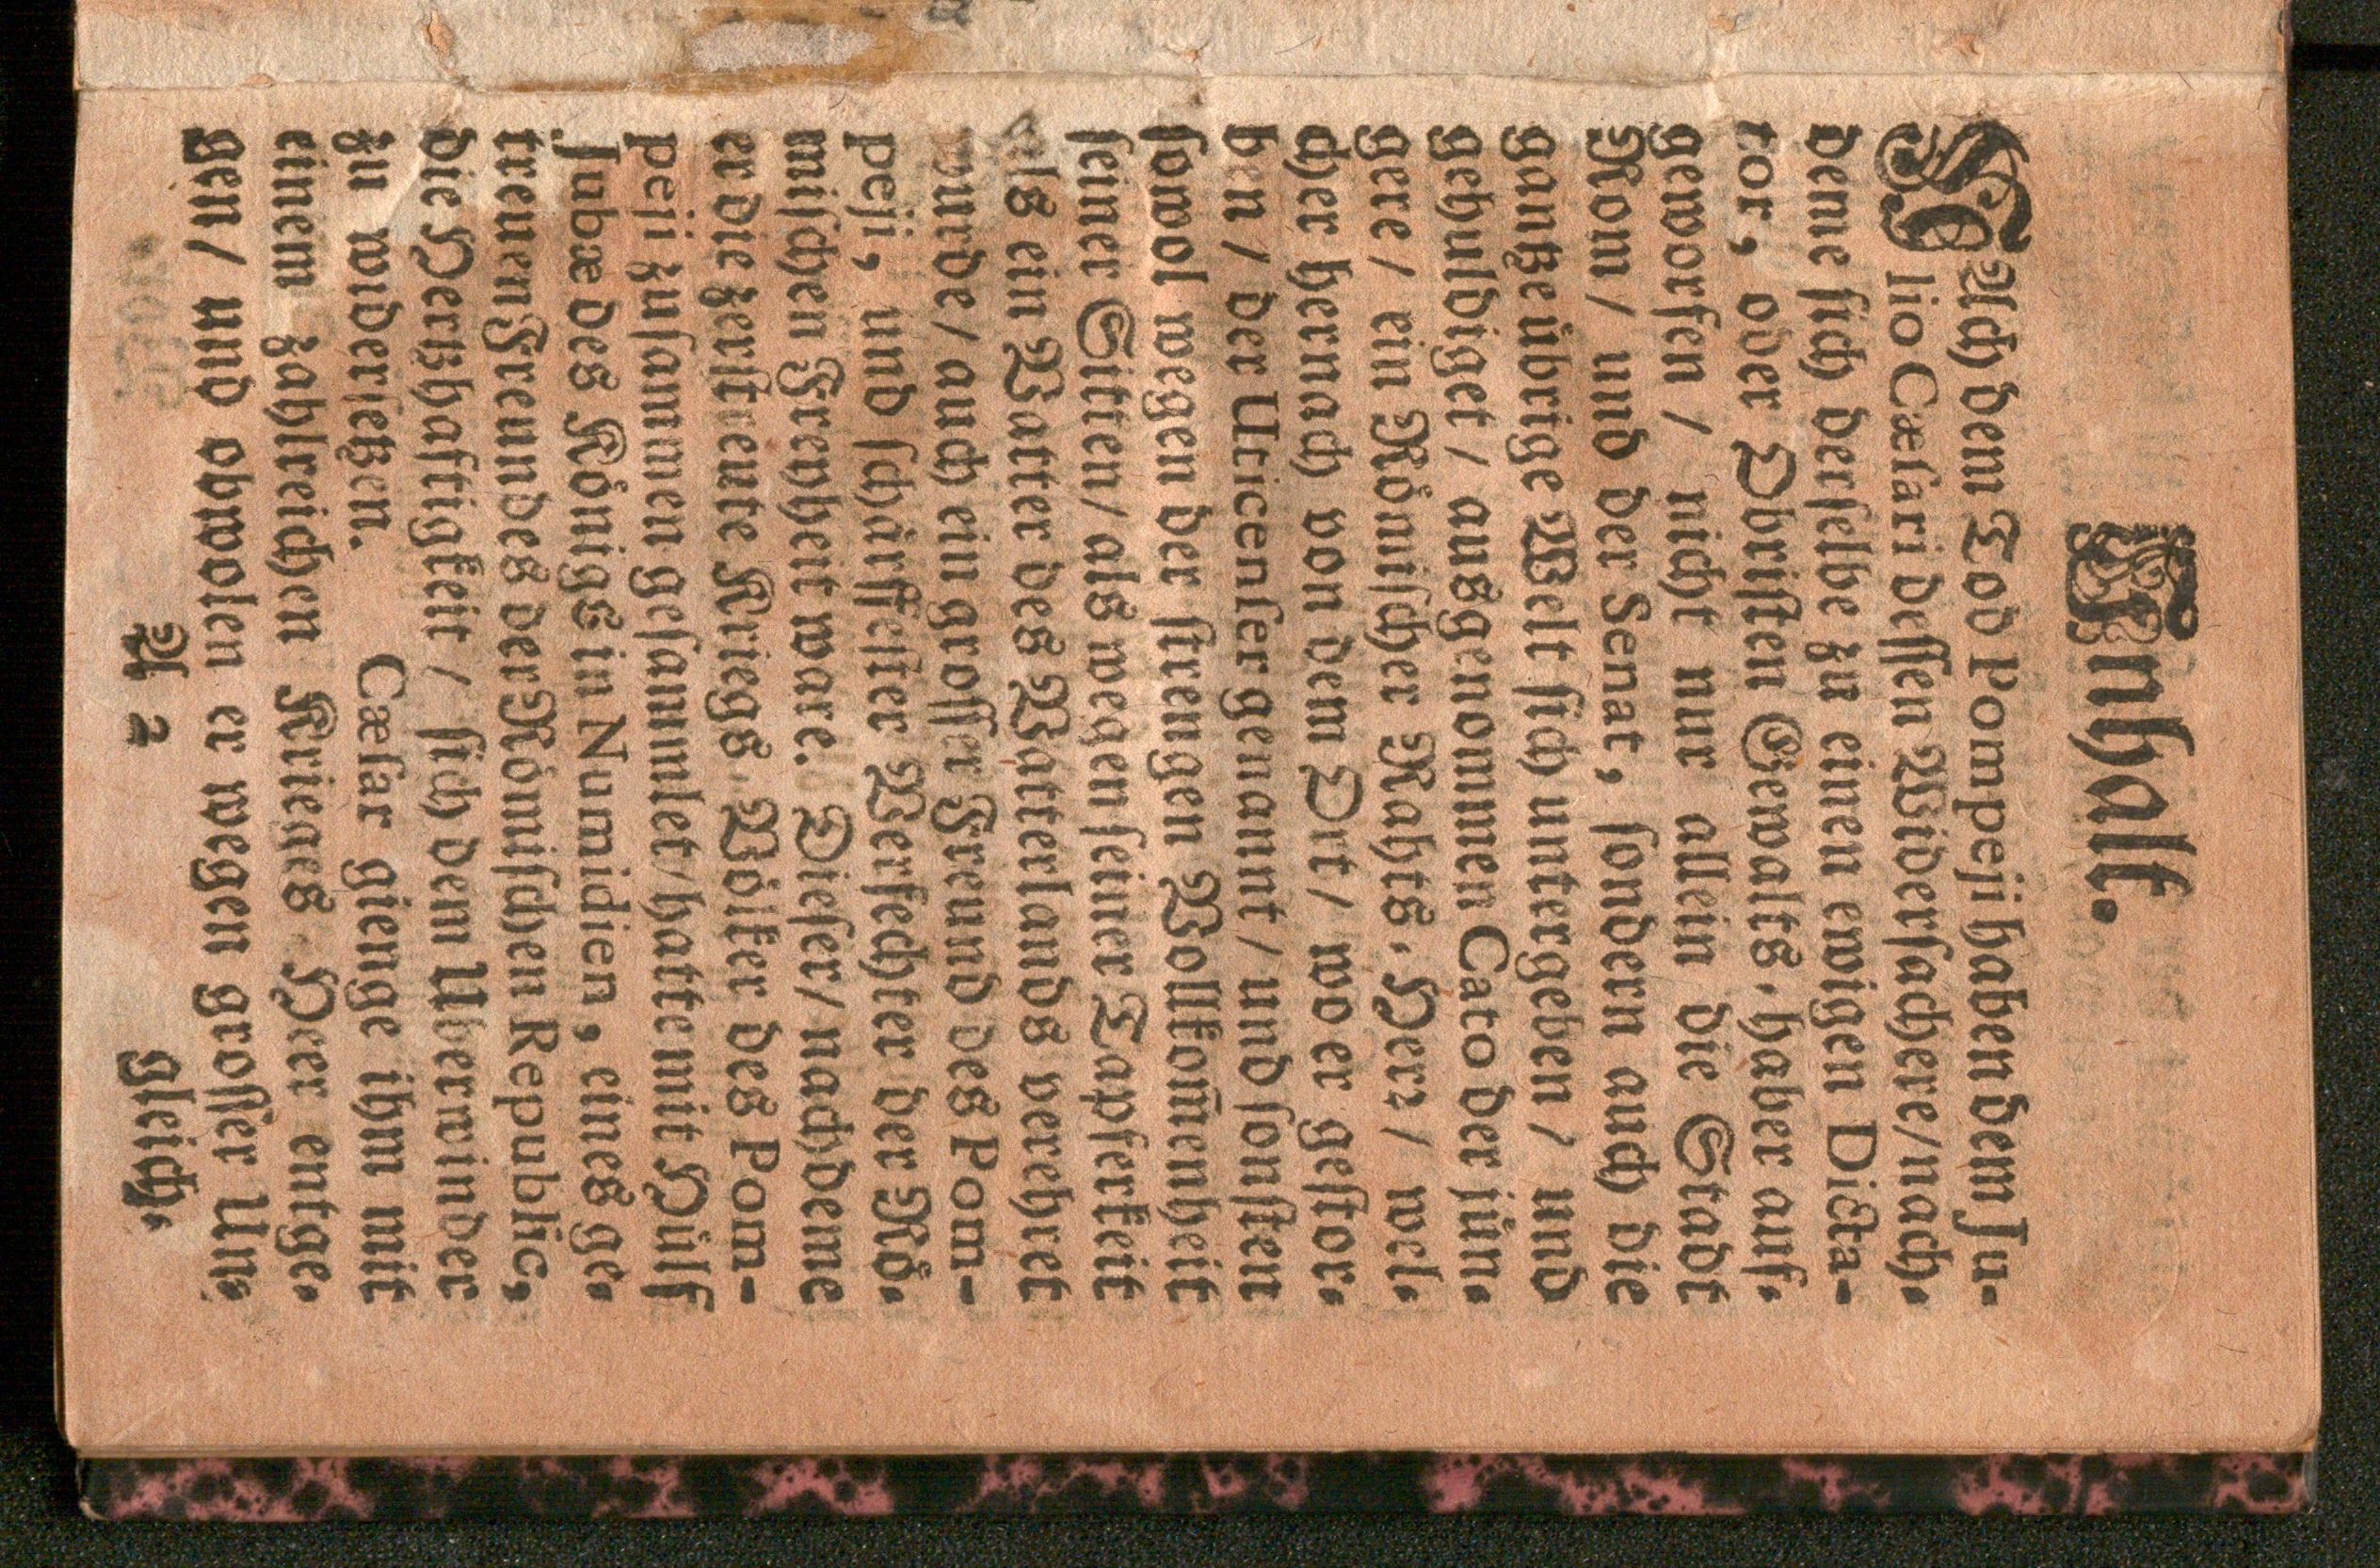 Inhalt.
NAch dem Tod Pompeji haben dem Ju-
lio Cæsari dessen Widersachere/nach-
deme sich derselbe zu einen ewigen Dicta-
tor, oder Obristen Gewalts-haber auf-
geworfen / nicht nur allein die Stadt
Rom / und der Senat, sondern auch die
gantze übrige Welt sich untergeben / und
gehuldiget / ausgenommen Cato der jün-
gere / ein Römischer Rahts-Herr / wel-
cher hernach von dem Ort / wo er gestor-
ben / der Uticenser genannt / und sonsten
sowol wegen der strengen Vollkom̃enheit
seiner Sitten/ als wegen seiner Tapferkeit
als ein Vatter des Vatterlands verehret
wurde/ auch ein grosser Freund des Pom-
peji, und schärffester Verfechter der Rö-
mischen Freyheit ware. Dieser/ nachdeme
er die zerstreute Kriegs-Völker des Pom-
peji zusammen gesammlet/hatte mit Hülf
Jubæ des Königs in Numidien, eines ge-
treuen Freundes der Römischen Republic,
die Hertzhaftigkeit / sich dem Uberwinder
zu widersetzen. Cæsar gienge ihm mit
einem zahlreichen Krieges-Heer entge-
gen / und obwolen er wegen grosser Un-
A 2 gleich-